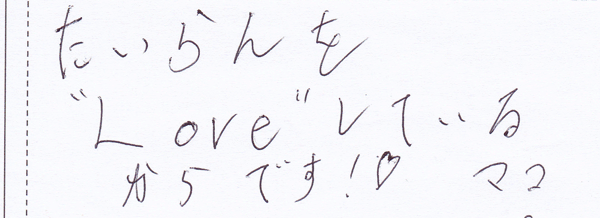 たいらんを
"Love"している
からです!♡ ママ